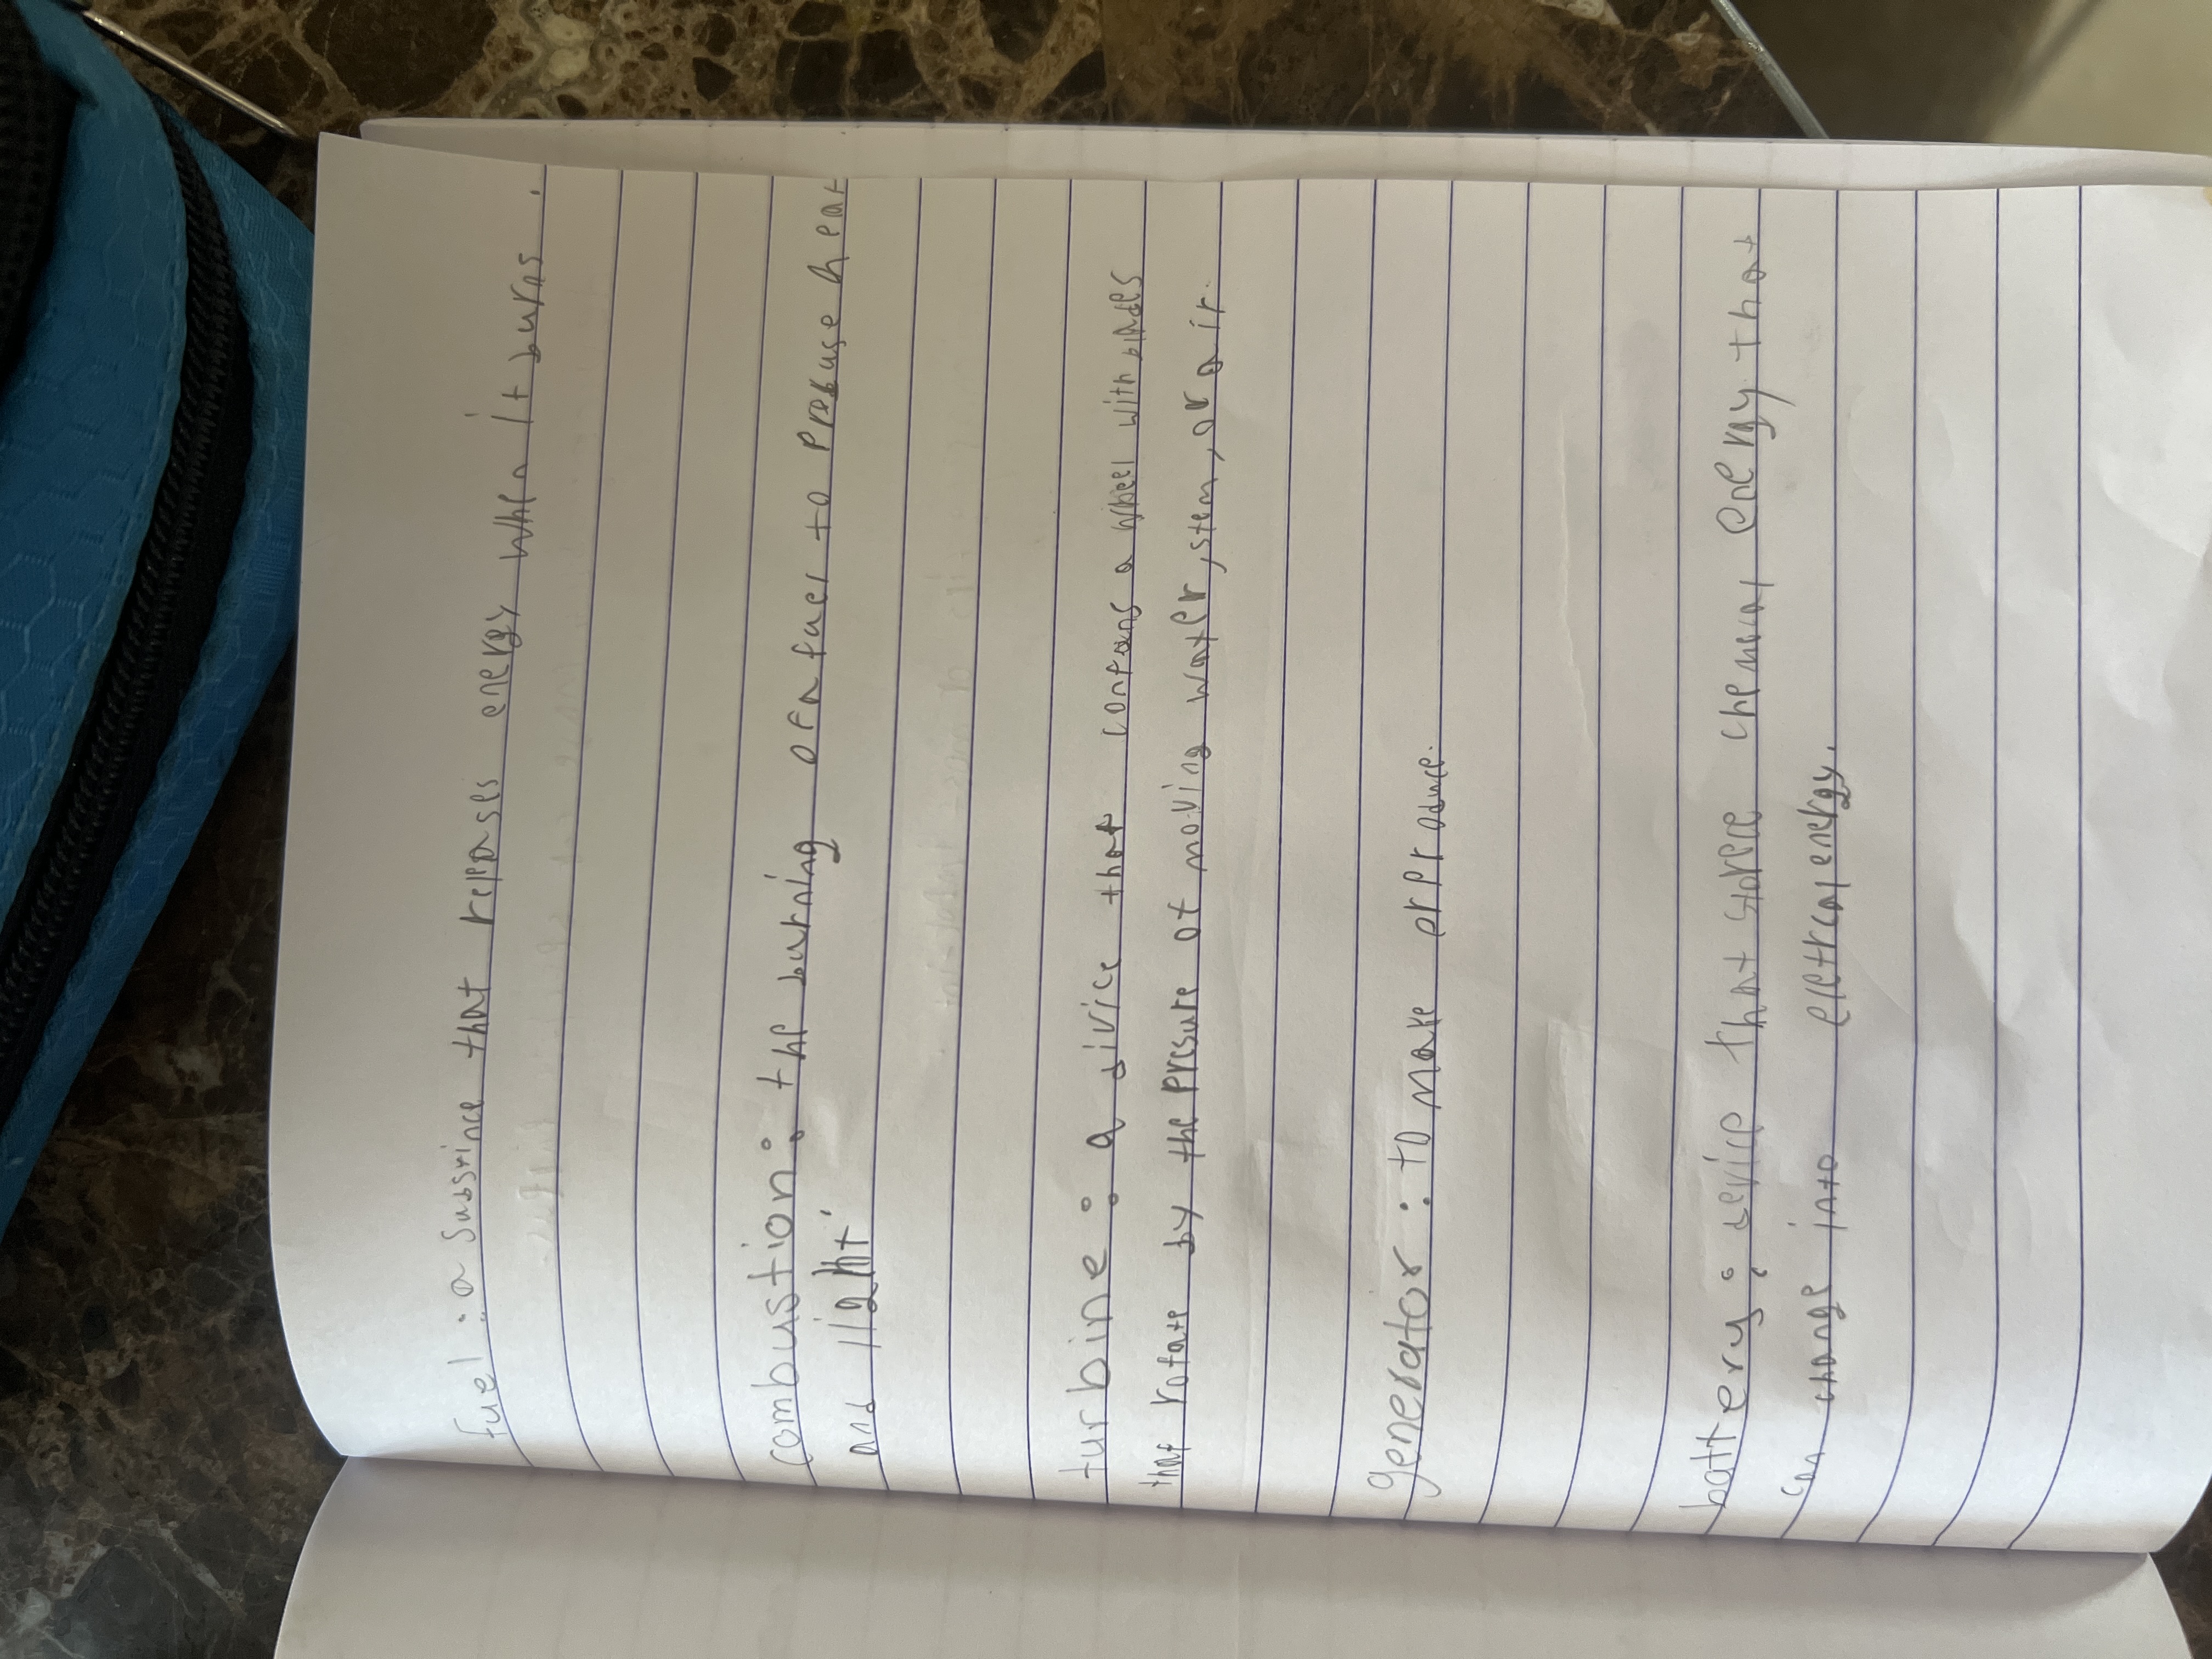 fuel : a subsrince that releases energy when it burns.
combustion : the burning of a fuel to preduse heat
and light.
turbine : a divice that contans a wheel with blades
that rotate by the presure of moving water, stem, or air.
generator : to make or produce.
battery : device that store chemical energy that
can change into electrcal energy.